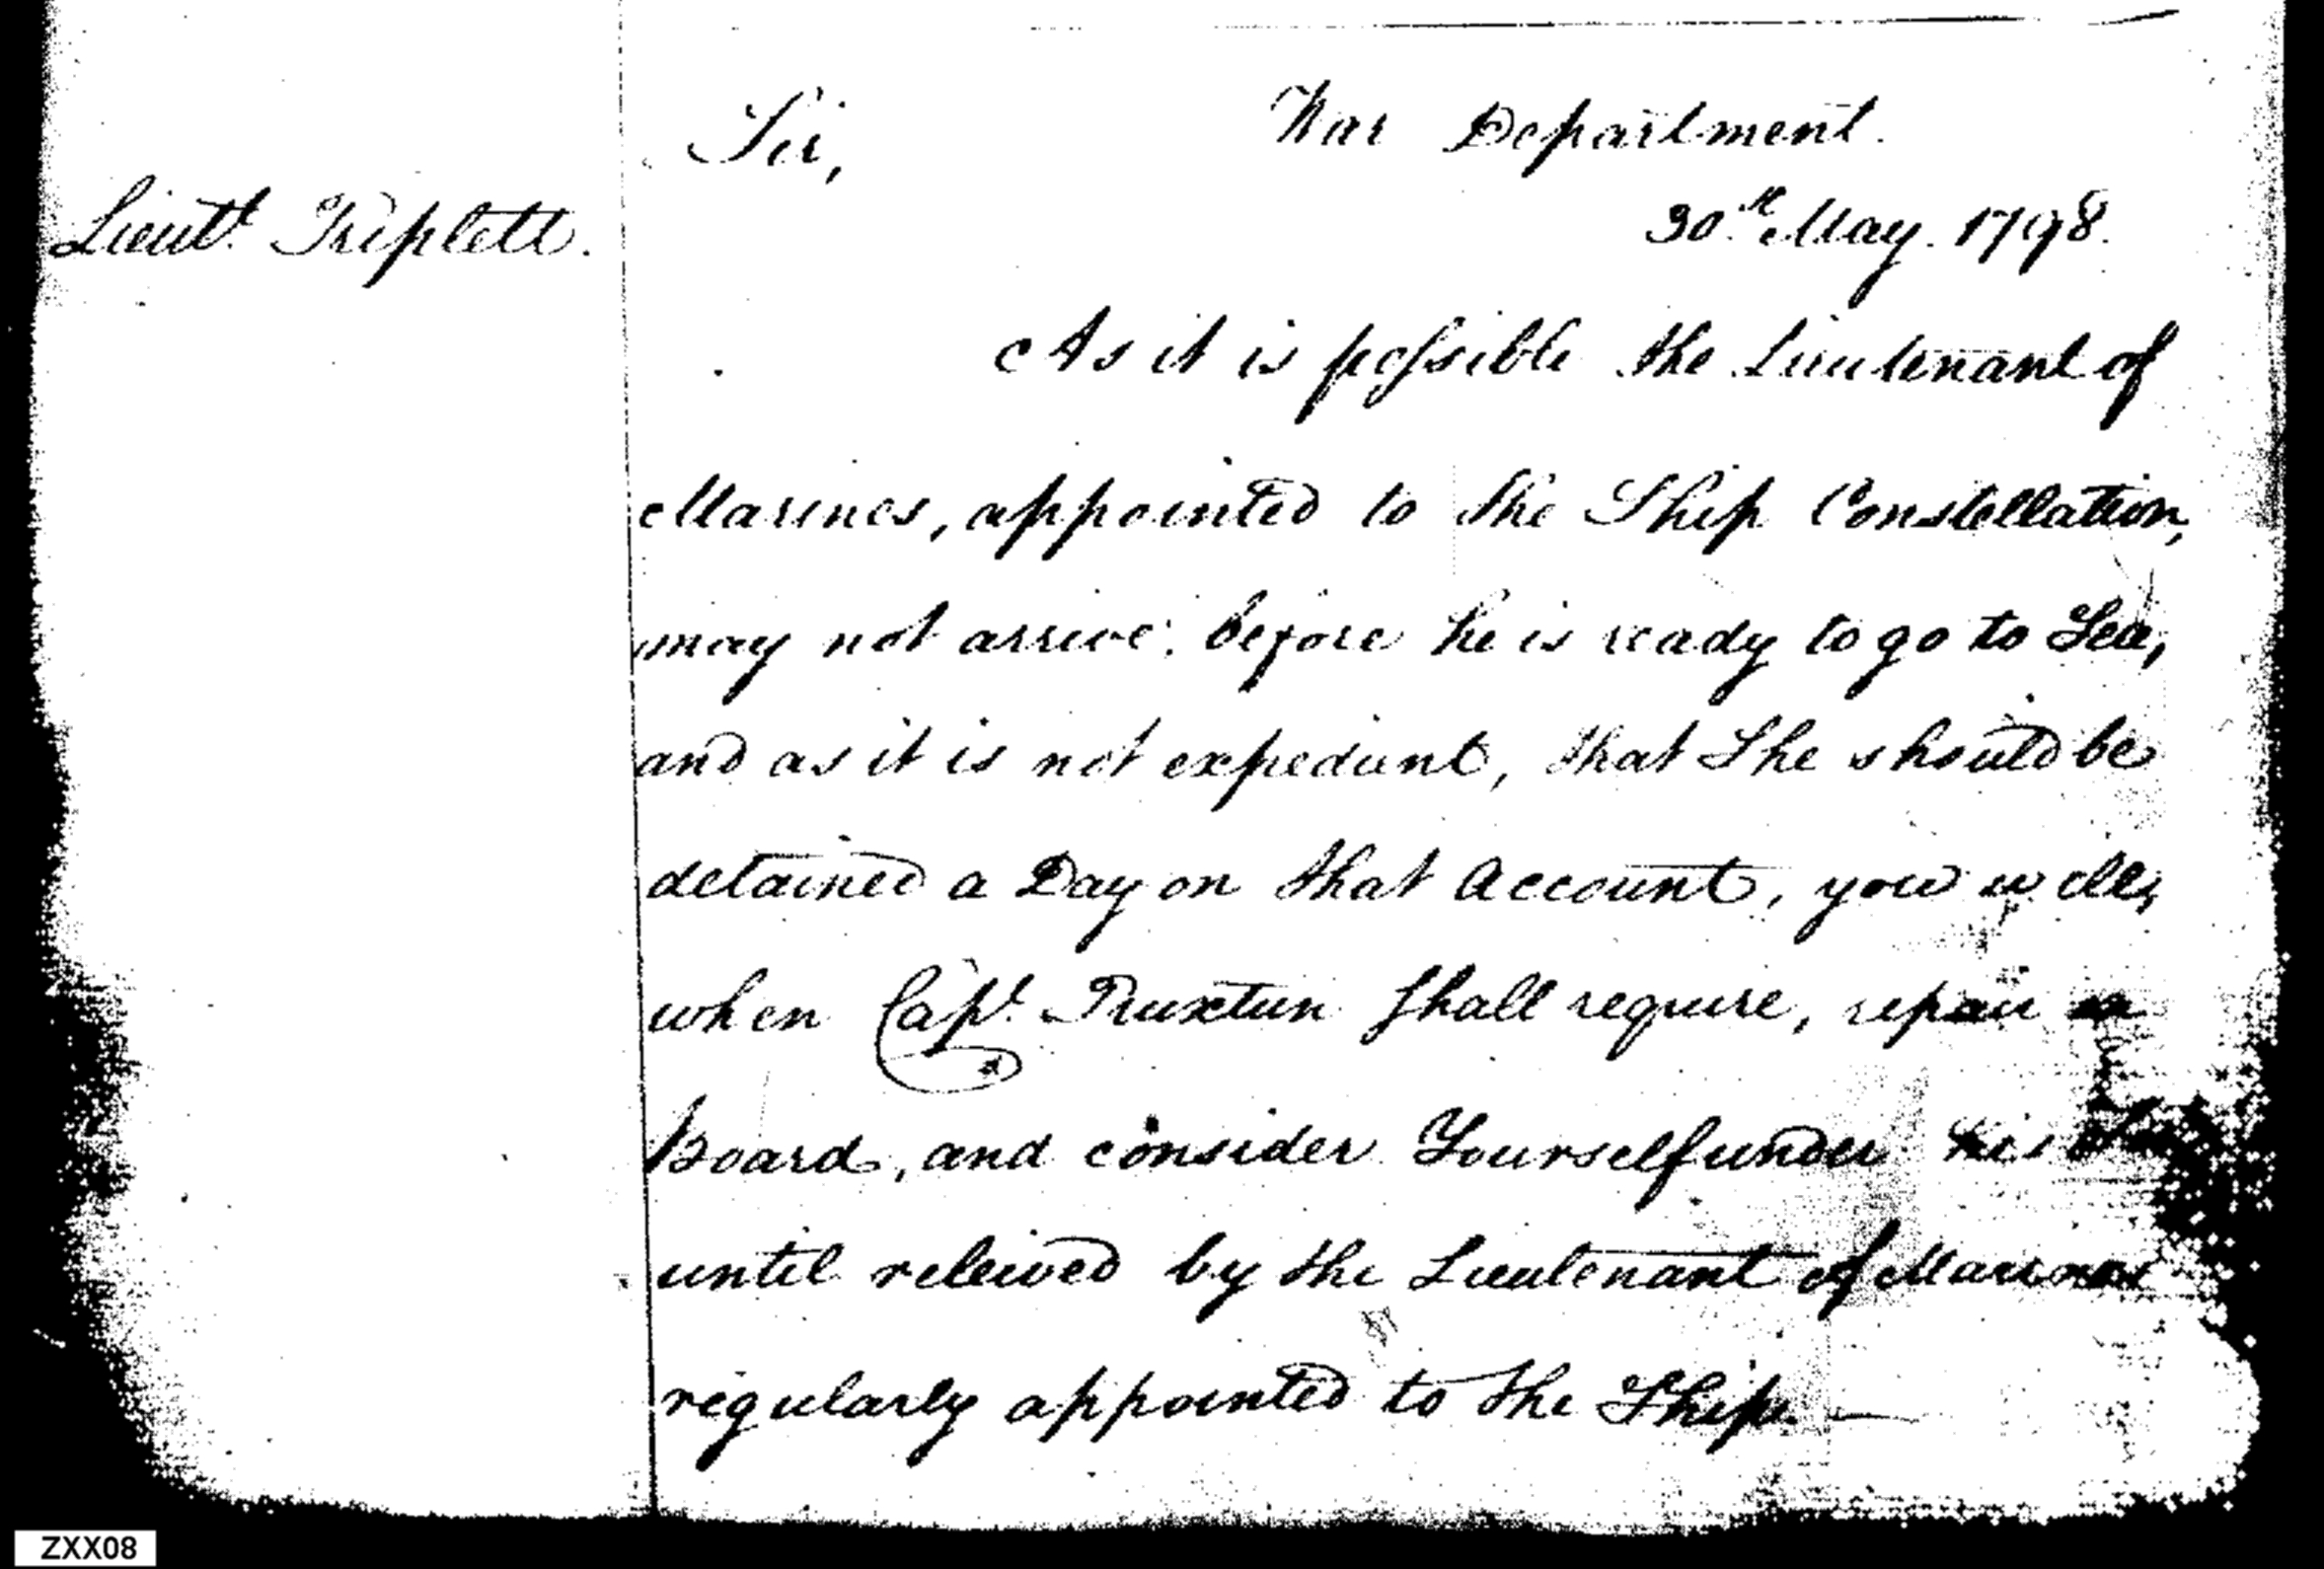 Sir,
War Department.
30th May. 1798.
Lieutt. Triplett.
As it is possible the Lieutenant of
Marines, appointed to the Ship Constellation,
may not arrive, before he is ready to go to Sea,
and as it is not expedient, that She should be
detained a Day on that Account, you will,
when Capt. Truxtun shall require, repair on
Board, and consider Yourself under his
until releived by the Lieutenant of Marines
regularly appointed to the Ship. —
ZXX08